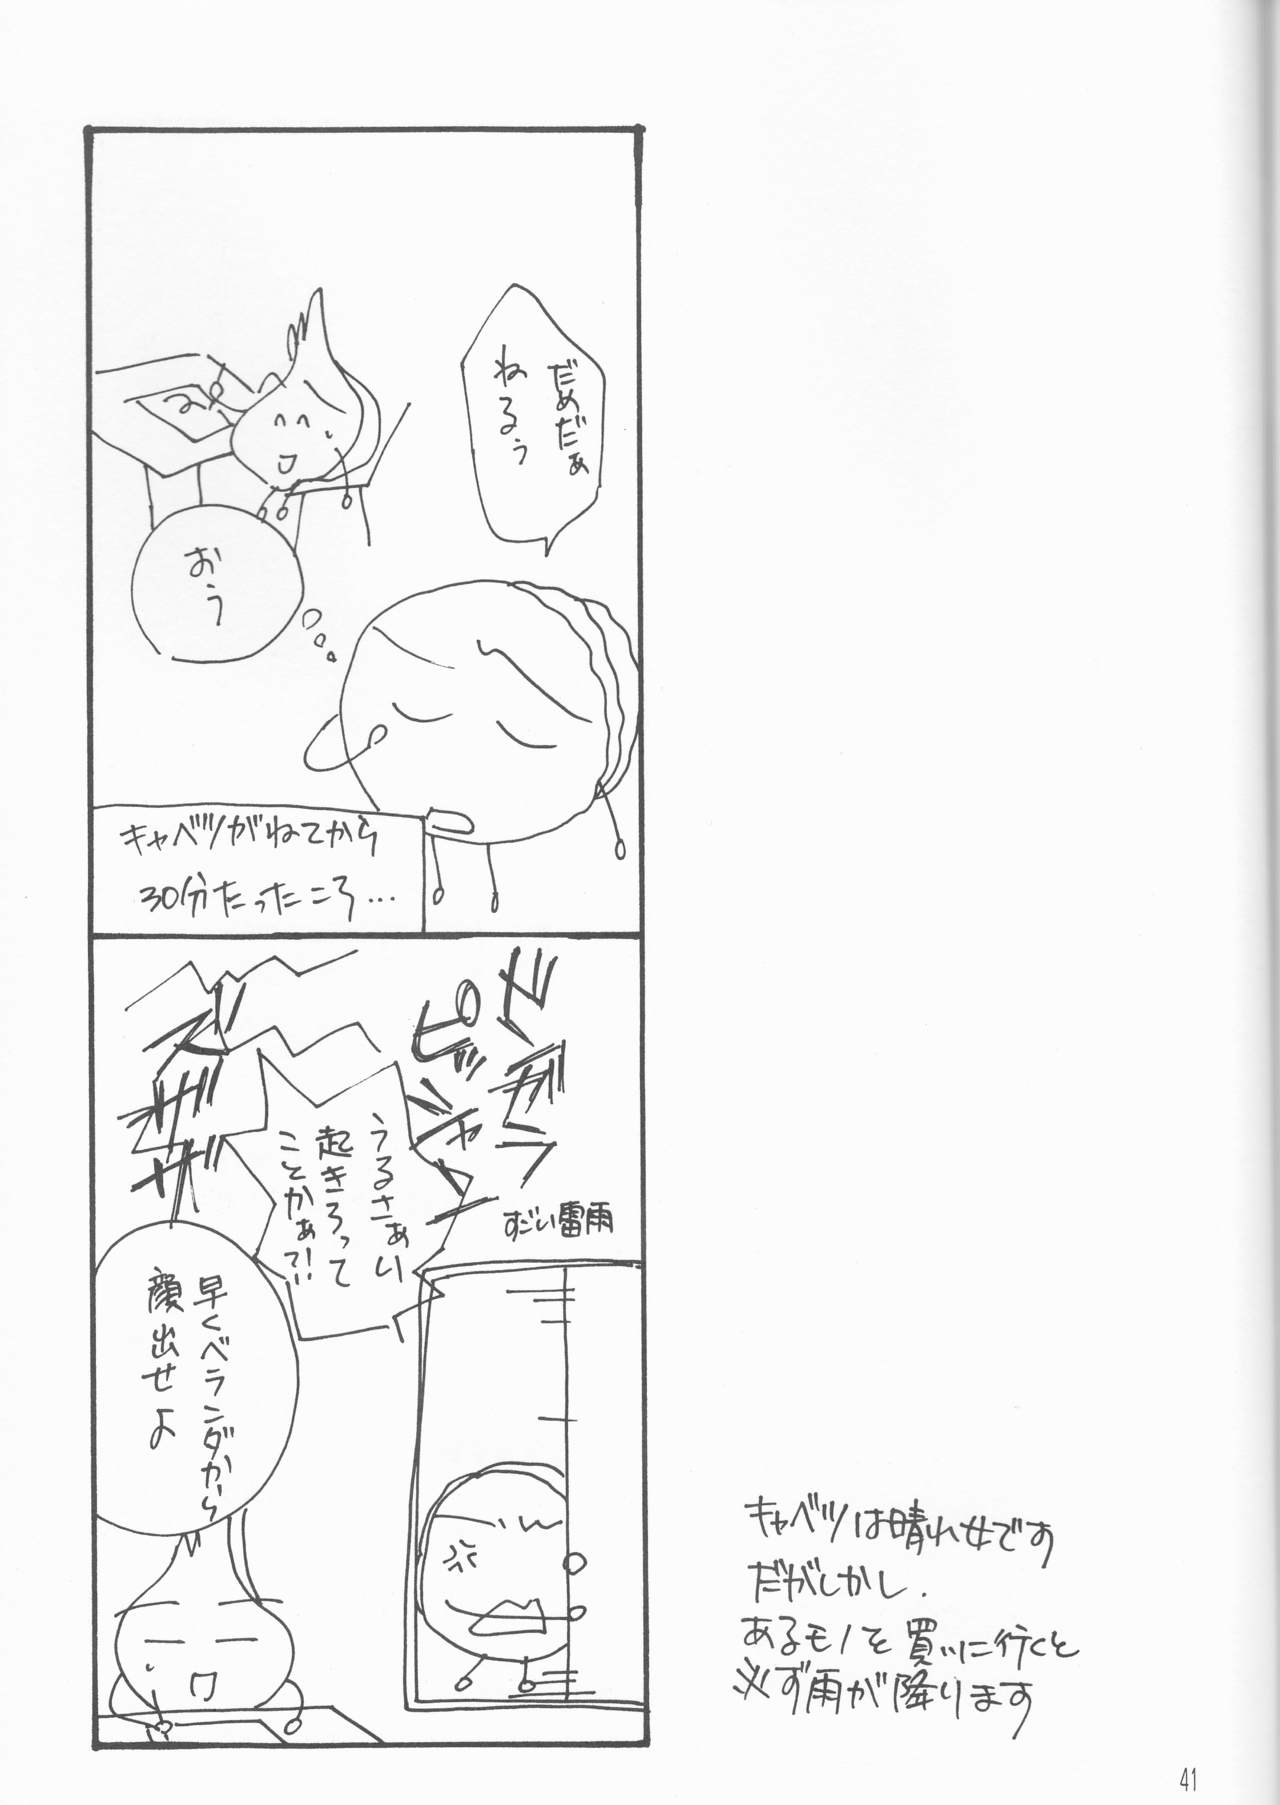 だめだぁ
ねるぅ
おう
キャベツがねてから
30分たったころ…
ドガラ
ピッシャー
ズザザ
すごい雷雨
うるさぁい
起きろって
ことかぁて!!
早くベランダから
顔出せよ
キャベツは晴れ女です
だがしかし、
あるモノを買いに行くと
必ず雨が降ります
41